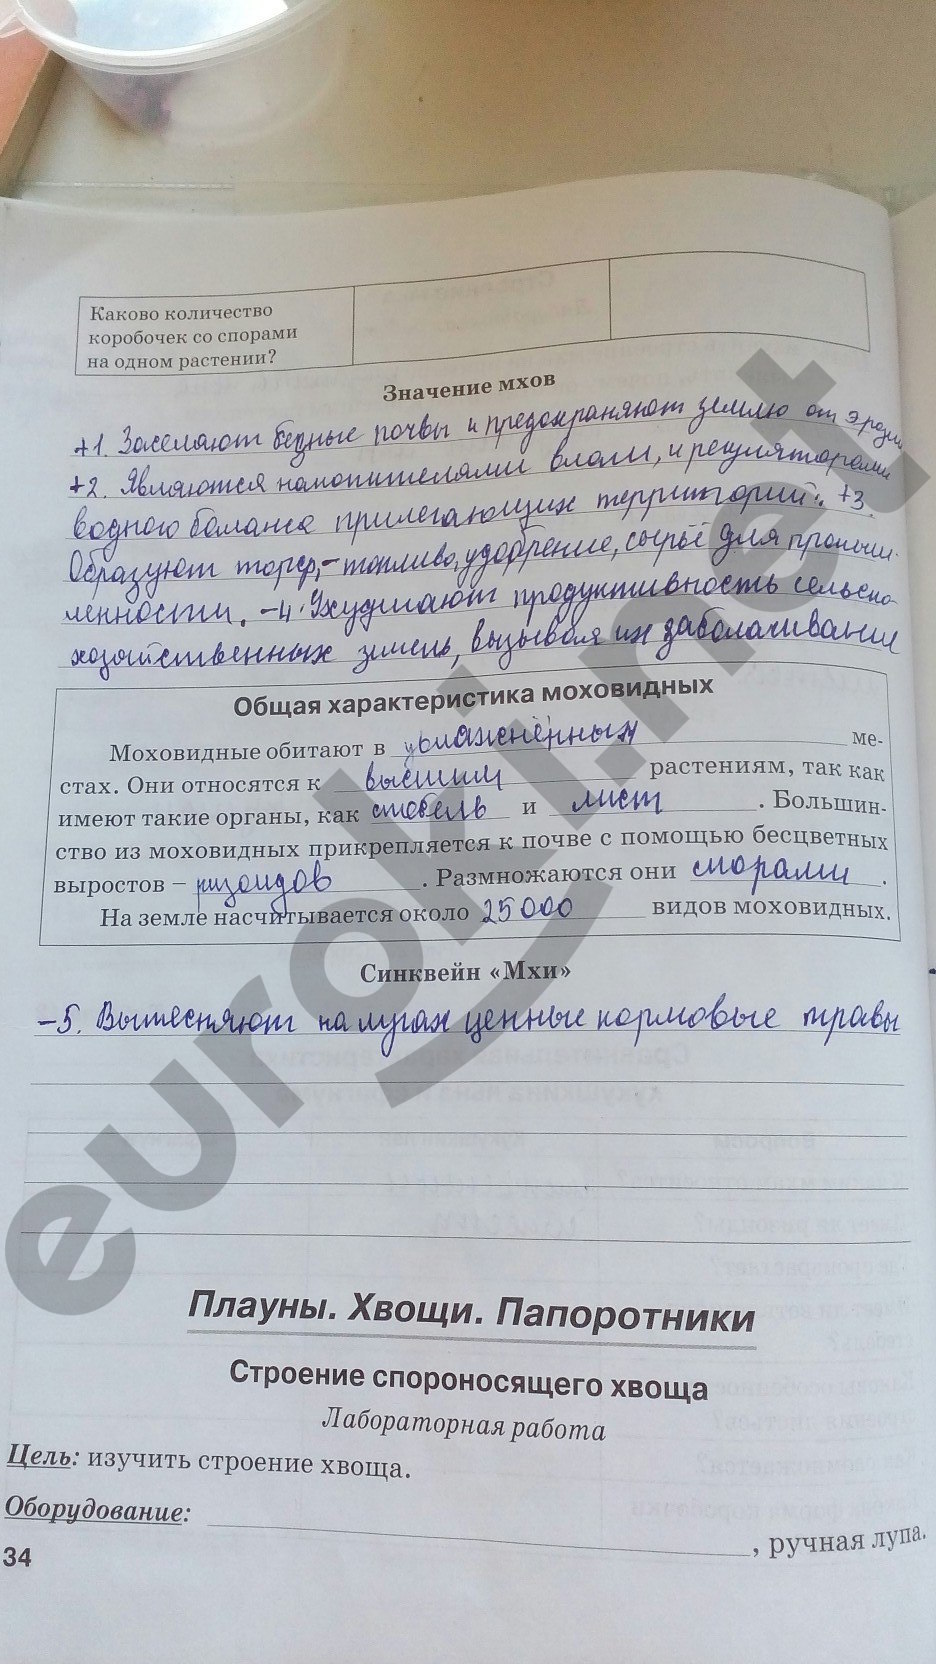 Каково количество
коробочек со спорами
на одном растении?
Значение мхов
+1. Заселяют бедные почвы и предохраняют землю от эрозии
+2. Являются накопителями влаги, и регуляторами
водного баланса прилегающих территорий. +3.
Образуют торф,-топливо, удобрение, сырьё для промыш-
ленности. -4. Ухудшают продуктивность сельско-
хозяйственных земель, вызывая их заболачивание
Общая характеристика моховидных
Моховидные обитают в увлажнённых ме-
стах. Они относятся к высшим растениям, так как
имеют такие органы, как стебель и лист. Большин-
ство из моховидных прикрепляется к почве с помощью бесцветных
выростов – ризоидов. Размножаются они спорами.
На земле насчитывается около 25000 видов моховидных.
Синквейн «Мхи»
-5. Вытесняют на лугах ценные кормовые травы
Плауны. Хвощи. Папоротники
Строение спороносящего хвоща
Лабораторная работа
Цель: изучить строение хвоща.
Оборудование: , ручная лупа.
34
euroki.net